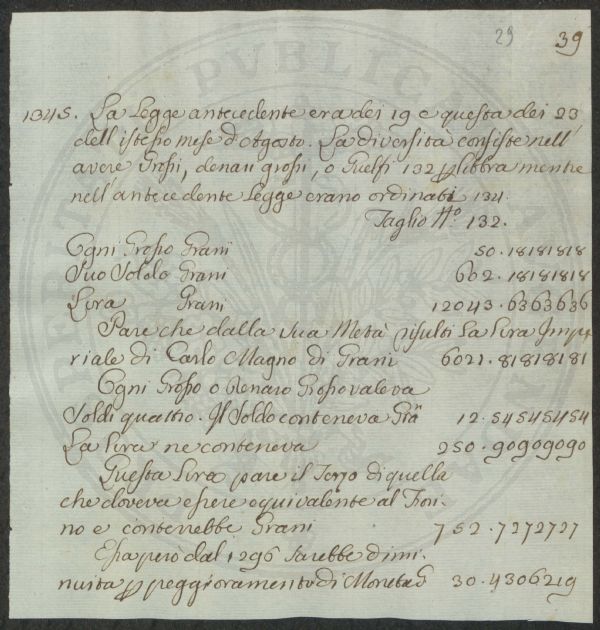 29 39
1345. La Legge antecedente era dei 19 e questa dei 23
dell'istesso mese d'Agosto. La diversità consiste nell'
avere Grossi, denari grossi, o Guelfi 132 p libbra mentre
nell'antecedente Legge erano ordinati 134.
Taglio N.o 132.
Ogni Grosso Grani 50.18181818
Suo Soldo Grani 602.18181818
Lira Grani 12043.6363636
Pare che dalla sua Metà risulti La Lira Impe
riale di Carlo Magno di Grani 6021.81818181
Ogni Grosso o denaro Grosso valeva
Soldi quattro. Il Soldo conteneva Grã 12.54545454
La Lira ne conteneva 250.90909090
Questa Lira pare il Terzo di quella
che doveva essere equivalente al Fiori-
no e conterrebbe Grani 752.7272727
Essa però dal 1296 sarebbe dimi-
nuita p peggioramento di Moneta G 30.4306219